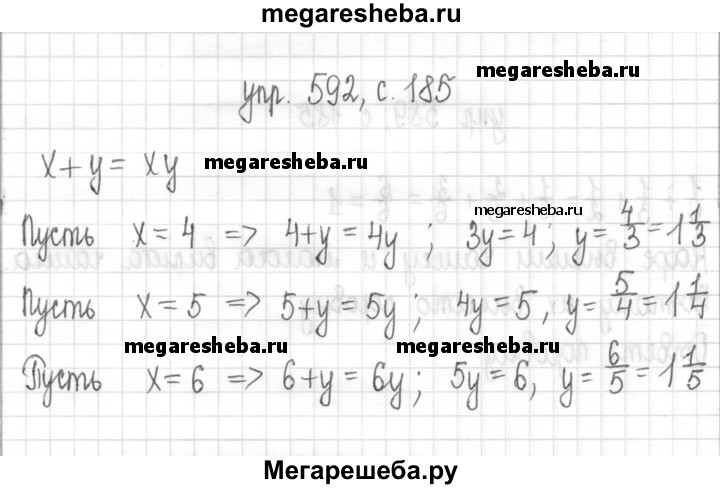 megaresheba.ru
упр. 592, с. 185 megaresheba.ru
x+y = xy megaresheba.ru
megaresheba.ru
Пусть x=4 => 4+y=4y ; 3y=4 ; y=4/3=1 1/3
Пусть x=5 => 5+y=5y ; 4y=5, y=5/4=1 1/4
megaresheba.ru megaresheba.ru
Пусть x=6 => 6+y=6y ; 5y=6, y=6/5=1 1/5
Мегарешеба.ру